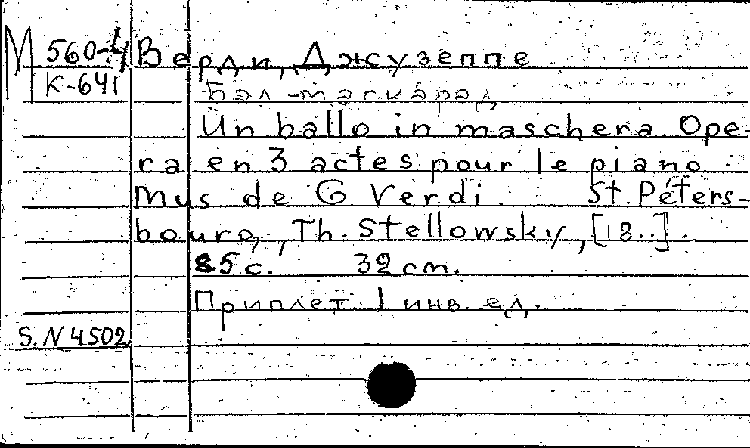 М 560-4 Верди, Джузеппе
К-641
Бал-маскарад
Un ballo in maschera Ope-
ra en 3 actes pour le piano.
Mus de G Verdi. St Péters-
bourg, Th. Stellowsky, [18..].
85 с. 32 cm.
Приплет. 1 инв. ед.
S. N 4502